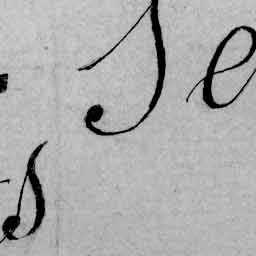 Se
s